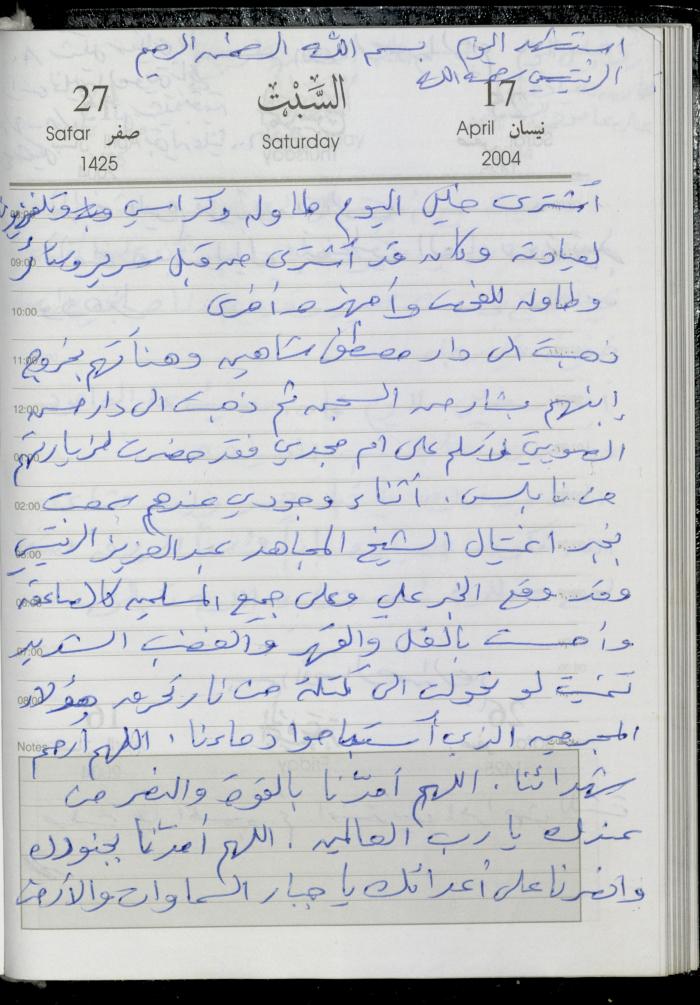 استشهد اليوم بسم الله الرحمن الرحيم
الرنتيسي رحمه الله
27 السَّبْت 17
Safar صفر Saturday April نيسان
1425 2004
أشترى خليل اليوم طاوله وكراسي وتلفزيون
09:00 لعيادته وكان قد أشترى من قبل سرير وستائر
10:00 وطاوله للفحص وأجهزه أخرى
11:00 ذهبت الى دار مصطفى شاهين وهنأتهم بخروج
12:00 إبنهم بشار من السجن ثم ذهبت الى دار حسن
01:00 الصويتي لأسلم على ام مجدي فقد حضرت لزيارتهم
02:00 من نابلس. أثناء وجودي عندهم سمعت
03:00 بخبر اغتيال الشيخ المجاهد عبد العزيز الرنتيسي
وقد وقع الخبر علي وعلى جميع المسلمين كالصاعقه
07:00 وأحسست بالغل والقهر والغضب الشديد
08:00 تمنيت لو تحولت الى كتلة من نار تحرق هؤلاء
Notes المجرمين الذي أستباحوا دماءنا. اللهم أرحم
شهدائنا. اللهم أمدّنا بالقوة والنصر من
عندك يا رب العالمين. اللهم أمدّنا بجنودك
وانصرنا على أعدائك يا جبار السماوات والأرض